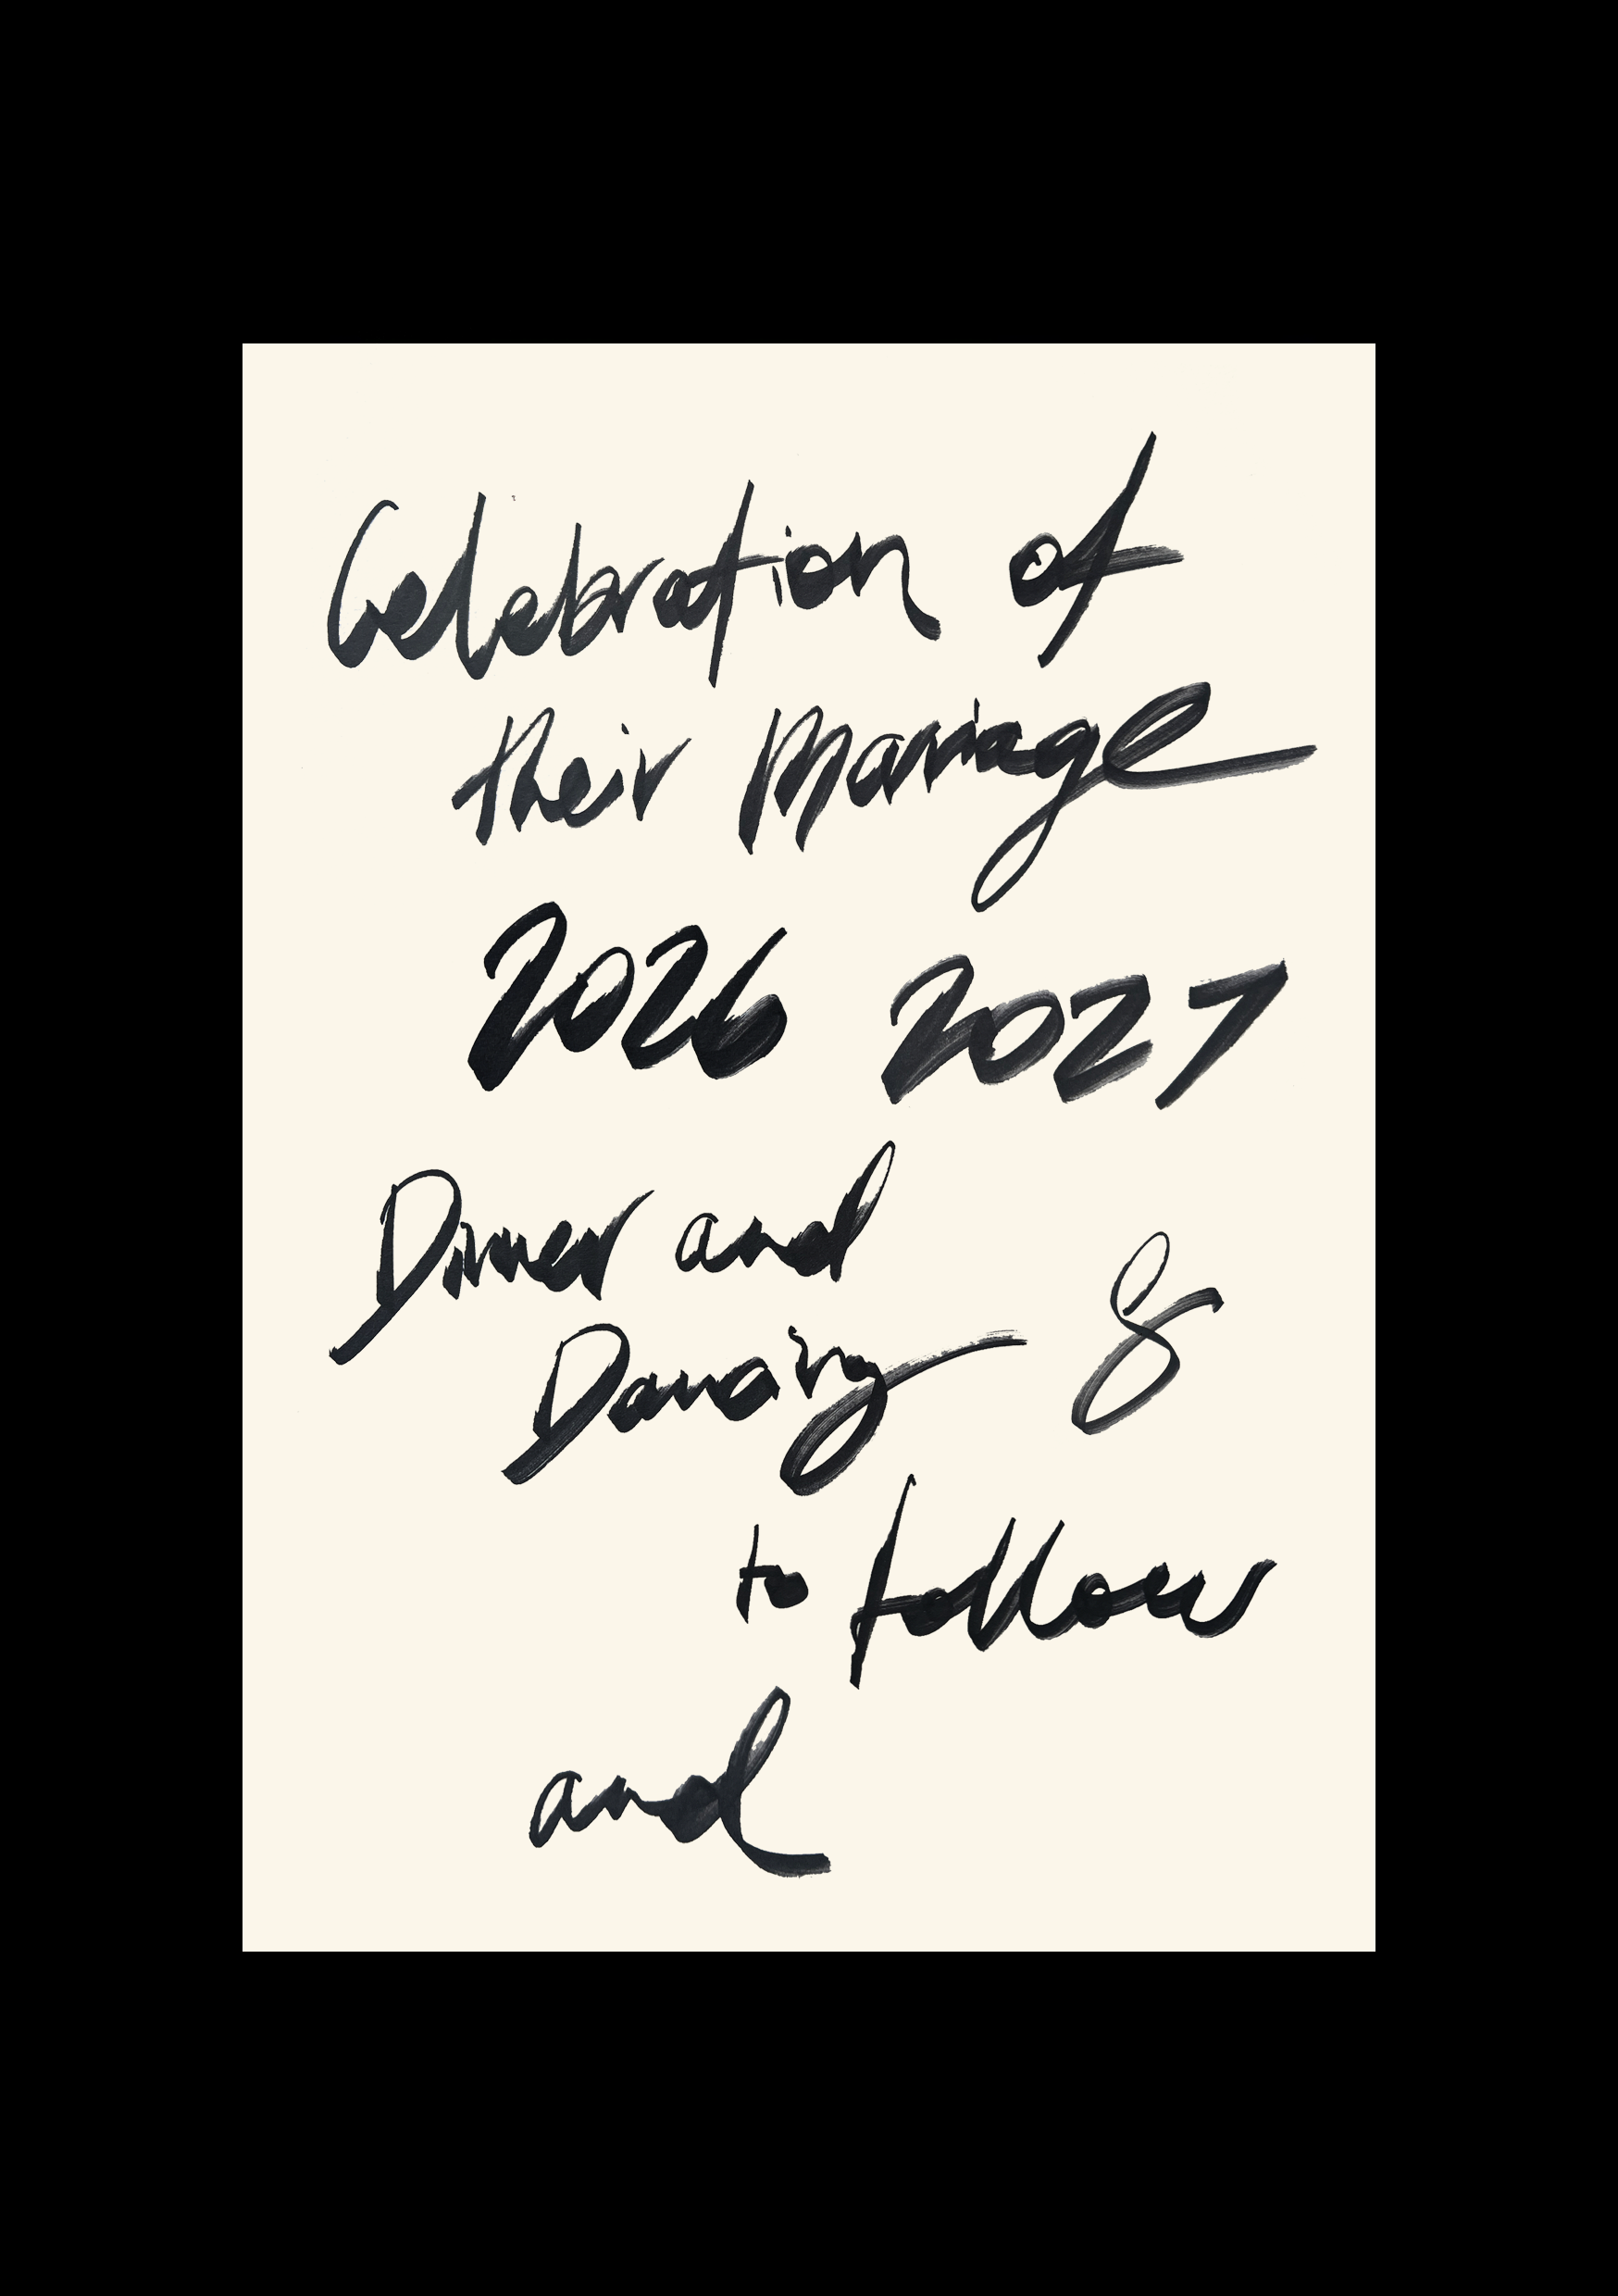 Celebration of
their Marriage
2026 2027
Dinner and
Dancing &
to follow
and